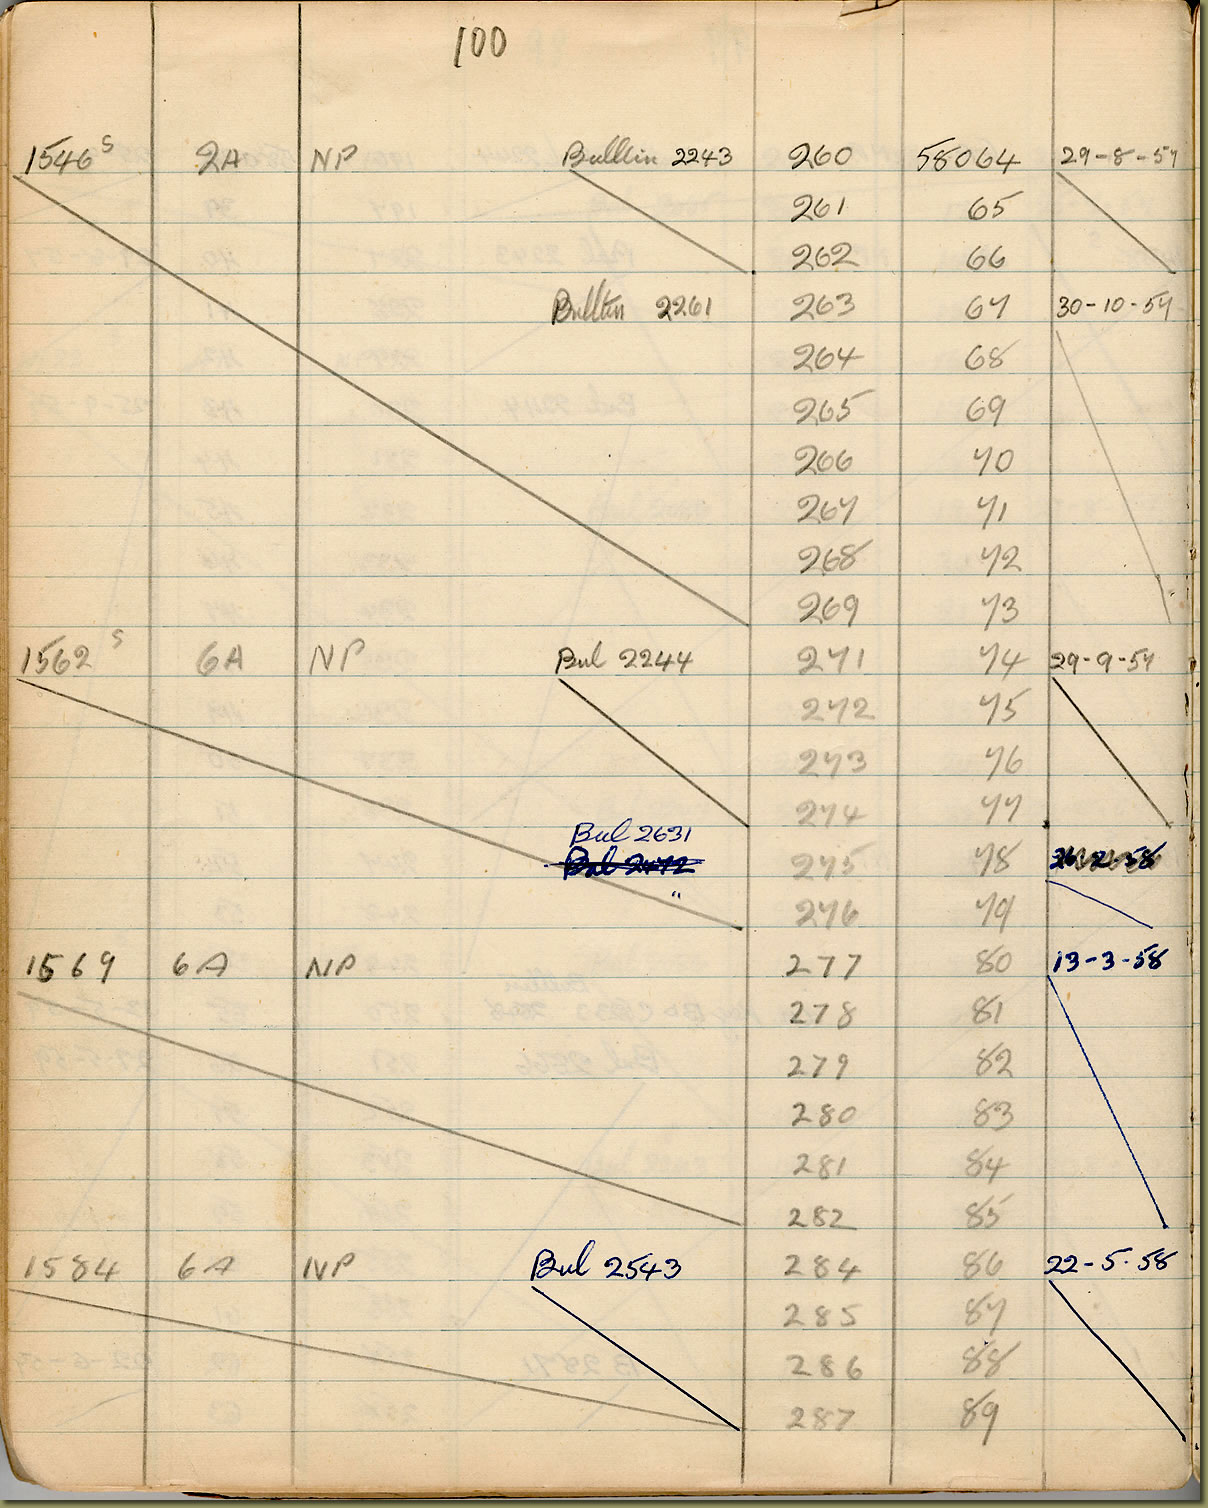 100
1546 S 2A NP Bulltin 2243 260 58064 29-8-57
261 65
262 66
Bulltin 2261 263 67 30-10-57
264 68
265 69
266 70
267 71
268 72
269 73
1562 S 6A NP Bul 2244 271 74 29-9-57
272 75
273 76
274 77
Bul 2631
Bul 2472 275 78 26-2-58
" 276 79
1569 6A NP 277 80 13-3-58
278 81
279 82
280 83
281 84
282 85
1584 6A NP Bul 2543 284 86 22-5-58
285 87
286 88
287 89